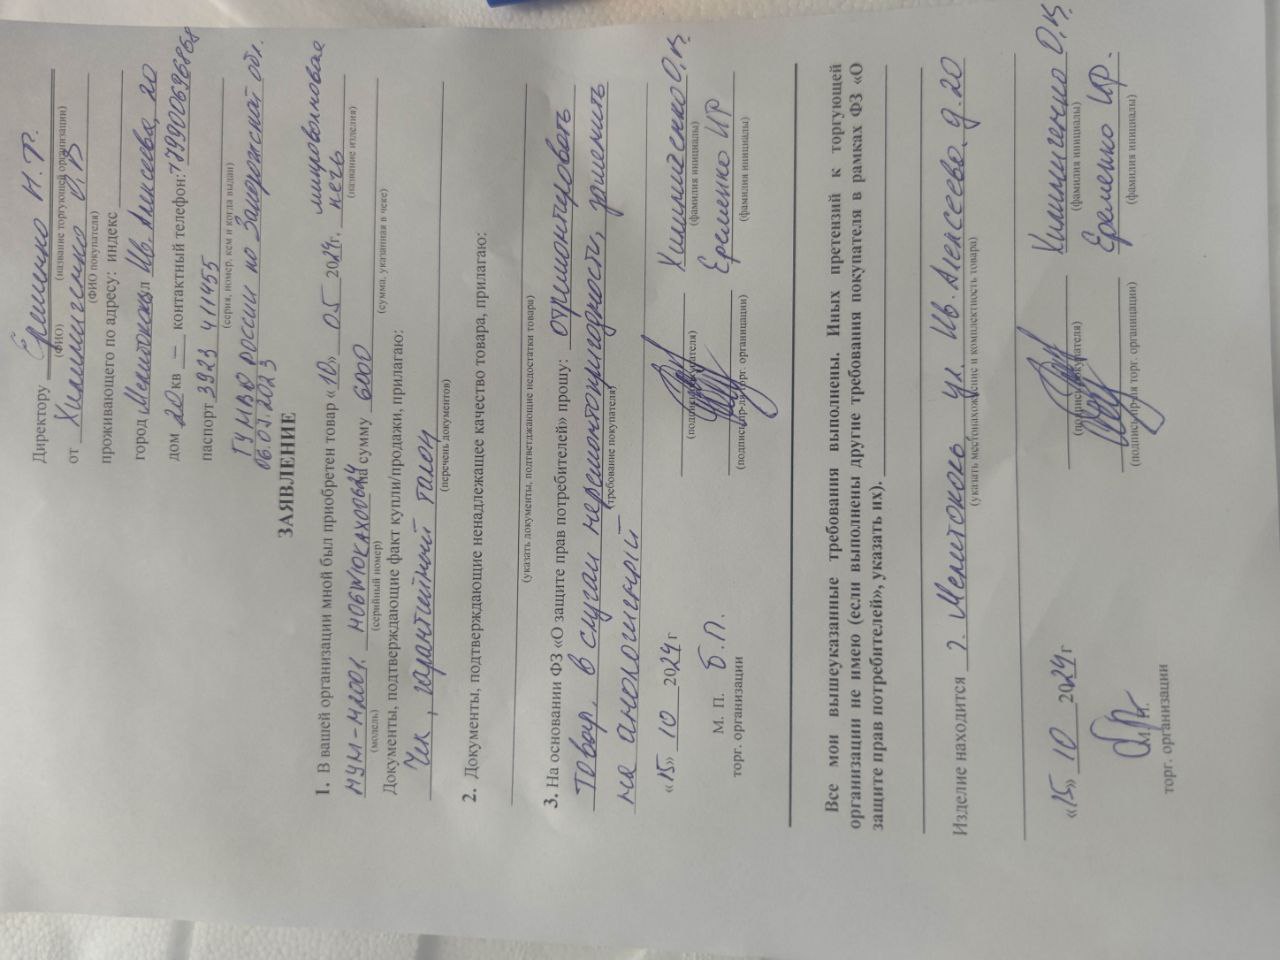 Директору Ерименко Н. Р.
(ФИО) (название торгующей организации)
от Хилимигенко О, В
(ФИО покупателя)
проживающего по адресу: индекс
город Мелитополь Ив. Алексеева, 20
дом 20 кв – контактный телефон: +79900696868
паспорт 3923 411455
(серия, номер, кем и когда выдан)
ГУ МВД России по Запорожской обл.
06.09.2023
ЗАЯВЛЕНИЕ
1. В вашей организации мной был приобретен товар «10» 05 2024г. микроволновая печь
(название изделия)
МУМ-М2001, на сумму 6000
(модель) (серийный номер) (сумма, указанная в чеке)
Документы, подтверждающие факт купли/продажи, прилагаю:
Чек, гарантийный талон
(перечень документов)
2. Документы, подтверждающие ненадлежащее качество товара, прилагаю:
(указать документы, подтверждающие недостатки товара)
3. На основании ФЗ «О защите прав потребителей» прошу: отремонтировать
товар, в случаи неремонтопригодности,
(требование покупателя)
на аналогичный
«15» 10 2024 г Хилимигенко О,В,
(подпись покупателя) (фамилия инициалы)
М. П. Б.П. Еременко НР
торг. организации (подпись пр-ля торг. организации) (фамилия инициалы)
Все мои вышеуказанные требования выполнены. Иных претензий к торгующей
организации не имею (если выполнены другие требования покупателя в рамках ФЗ «О
защите прав потребителей», указать их).
Изделие находится г. Мелитополь ул. Ив. Алексеева д. 20
(указать местонахождение и комплектность товара)
«15» 10 2024г Хилимигенко О,В,
(подпись покупателя) (фамилия инициалы)
М.П. Еременко НР.
торг. организации (подпись пр-ля торг. организации) (фамилия инициалы)